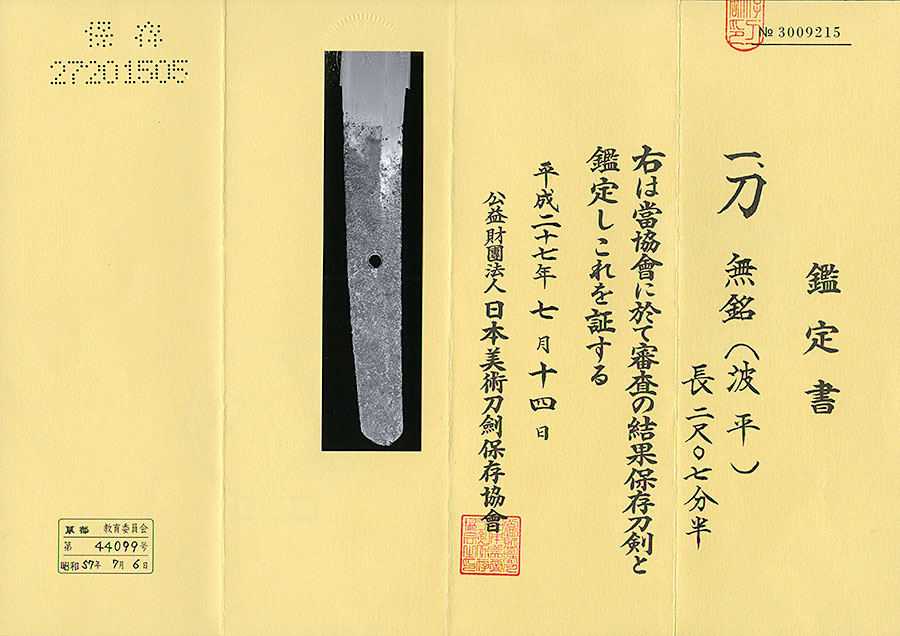 № 3009215
鑑定書
一、刀 無銘(波平)
長 二尺〇七分半
右は當協會に於て審査の結果保存刀剣と
鑑定しこれを証する
平成二十七年 七月十四日
公益財團法人 日本美術刀劍保存協會
保存
27201505
京都 教育委員会
第 44099号
昭和 57年 7月 6日